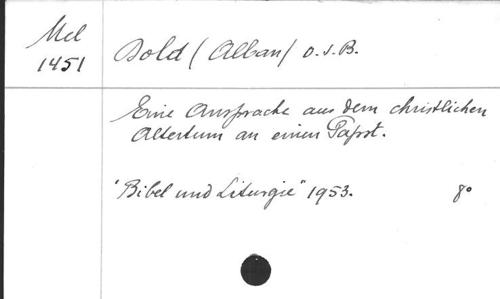 Mel
1451
Dold (Alban) O.S.B.
Eine Ansprache aus dem christlichen
Altertum an einen Papst.
"Bibel und Liturgie" 1953. 8°